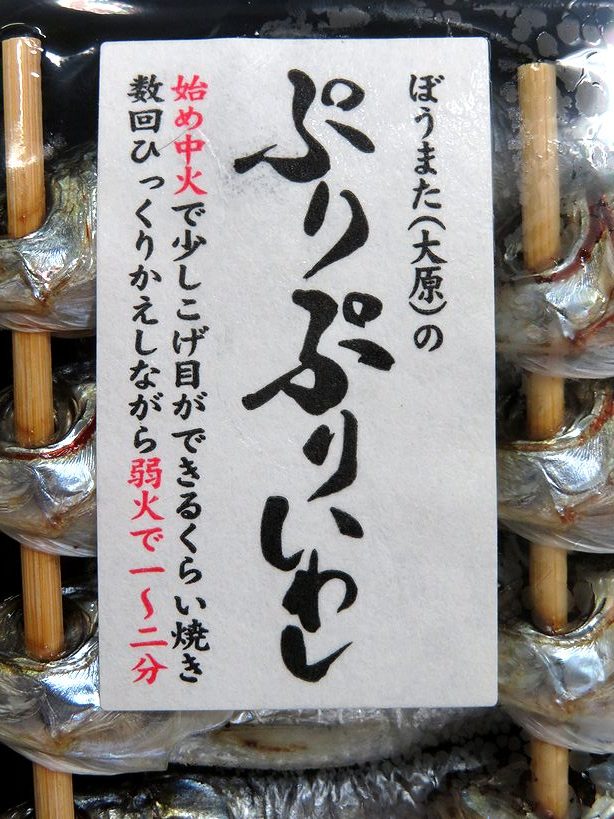 ぼうまた(大原)の
ぷりぷりいわし
始め中火で少しこげ目ができるくらい焼き
数回ひっくりかえしながら弱火で一〜二分